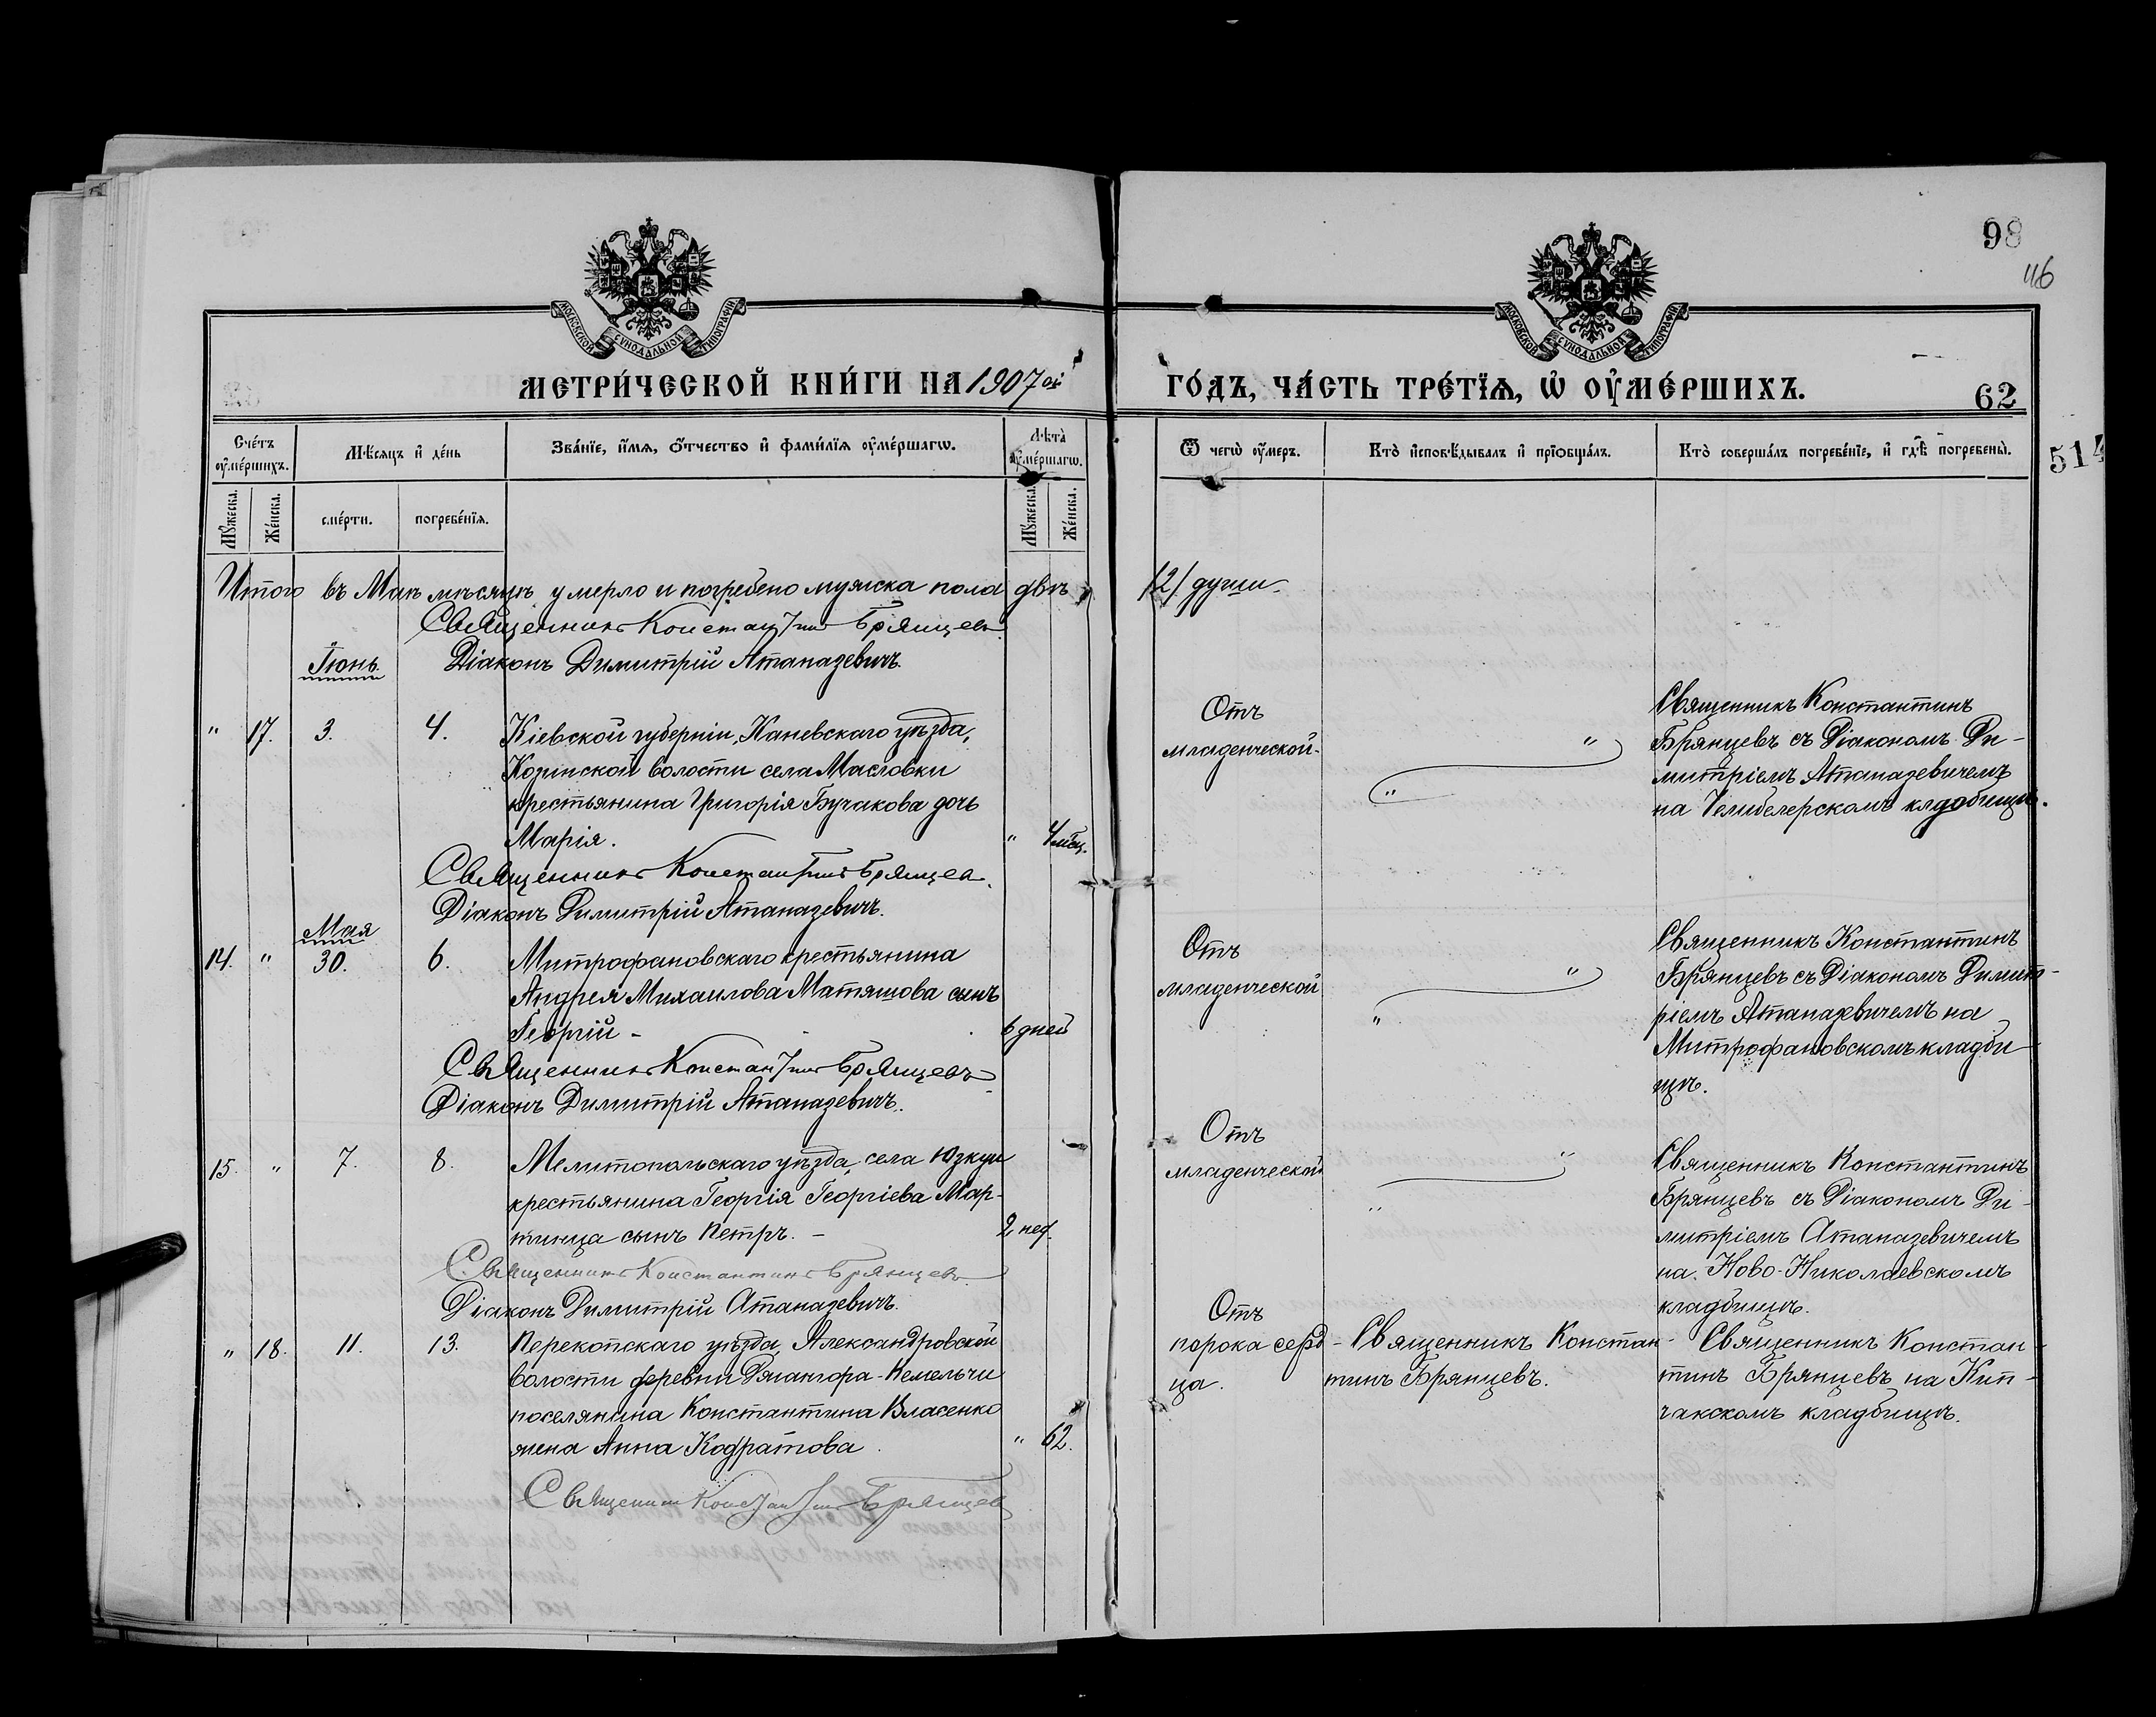 98
116
МОСКОВСКОЙ СѴНОДАЛЬНОЙ ТИПОГРАФІИ
МОСКОВСКОЙ СѴНОДАЛЬНОЙ ТИПОГРАФІИ
МЕТРИ́ЧЕСКОЙ КНИ́ГИ НА 1907 ой
ГО́ДЪ, ЧА́СТЬ ТРЕ́ТЇѦ, Ѡ҆ ОУ҆МЕ́РШИХЪ.
62
514
Сче́тъ оу҆ме́ршихъ.
Мѣ́сяцъ и҆ де́нь
Зва́нїе, и҆́мѧ, ѻ҆́тчество и҆ фами́лїѧ оу҆ме́ршагѡ.
Лѣта̀ оу҆ме́ршагѡ.
Ѿ чегѡ̀ оу҆́меръ.
Кто̀ и҆сповѣ́дывалъ и҆ прїѡбща́лъ.
Кто̀ соверша́лъ погребе́нїе, и҆ гдѣ̀ погребены̀.
Мꙋ́жеска.
Же́нска.
сме́рти.
погребе́нїѧ.
Мꙋ́жеска.
Же́нска.
Итого въ Маѣ мѣсяцѣ умерло и погребено мужска пола двѣ /2/ души.
Священникъ Константинъ Брянцевъ
Іюнь.
Діаконъ Димитрій Атаназевичъ.
" 17. 3. 4.
Кіевской губерніи, Каневскаго уѣзда,
Козинской волости села Масловки
крестьянина Григорія Бучакова дочь
Марія.
" 4 мѣс.
Отъ
младенческой.
" "
Священникъ Константинъ
Брянцевъ съ Діакономъ Ди-
митріемъ Атаназевичемъ
на кладбищѣ.
Священникъ Константинъ Брянцевъ
Діаконъ Димитрій Атаназевичъ.
Мая
14. " 30. 6.
Митрофановскаго крестьянина
Андрея Михаилова Матяшова сынъ
Георгій -
6 дней
Отъ
младенческой
" "
Священникъ Константинъ
Брянцевъ съ Діакономъ Димит-
ріемъ Атаназевичемъ на
Митрофановскомъ кладби-
щѣ.
Священникъ Константинъ Брянцевъ
Діаконъ Димитрій Атаназевичъ.
15. " 7. 8.
Мелитопольскаго уѣзда, села Юзкуи
крестьянина Георгія Георгіева Мар-
тинца сынъ Петръ. -
2 нед.
Отъ
младенческой
" "
Священникъ Константинъ
Брянцевъ съ Діакономъ Ди-
митріемъ Атаназевичемъ
на Ново-Николаевскомъ
кладбищѣ.
Священникъ Константинъ Брянцевъ
Діаконъ Димитрій Атаназевичъ.
" 18. 11. 13.
Перекопскаго уѣзда, Александровской
волости деревни Джангора-Кемельчи
поселянина Константина Власенко
жена Анна Кодратова
" 62.
Отъ
порока серд-
ца.
Священникъ Констан-
тинъ Брянцевъ.
Священникъ Констан-
тинъ Брянцевъ на Кип-
чакскомъ кладбищѣ.
Священникъ Константинъ Брянцевъ